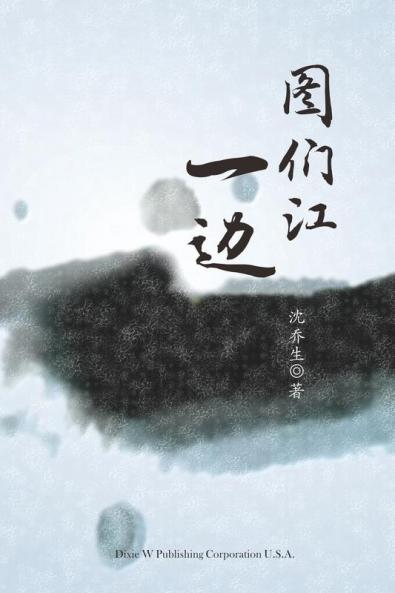 图们江
一边
沈乔生◎著
Dixie W Publishing Corporation U.S.A.